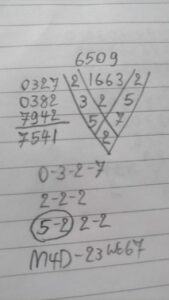 6509
0327 2 1663 2
0382 3 2 5
7942 5 7
7541 2
0-3-2-7
2-2-2
5-2 2-2